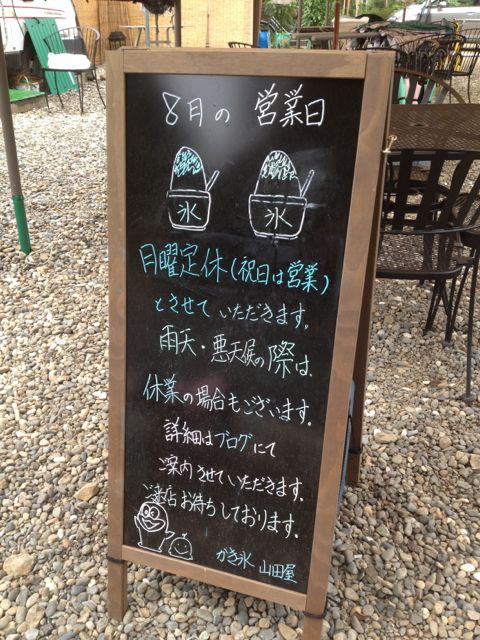 8月の 営業日
氷 氷
月曜定休(祝日は営業)
とさせていただきます。
雨天・悪天候の際は、
休業の場合もございます。
詳細はブログにて
ご案内させていただきます。
ご来店お待ちしております。
かき氷 山田屋